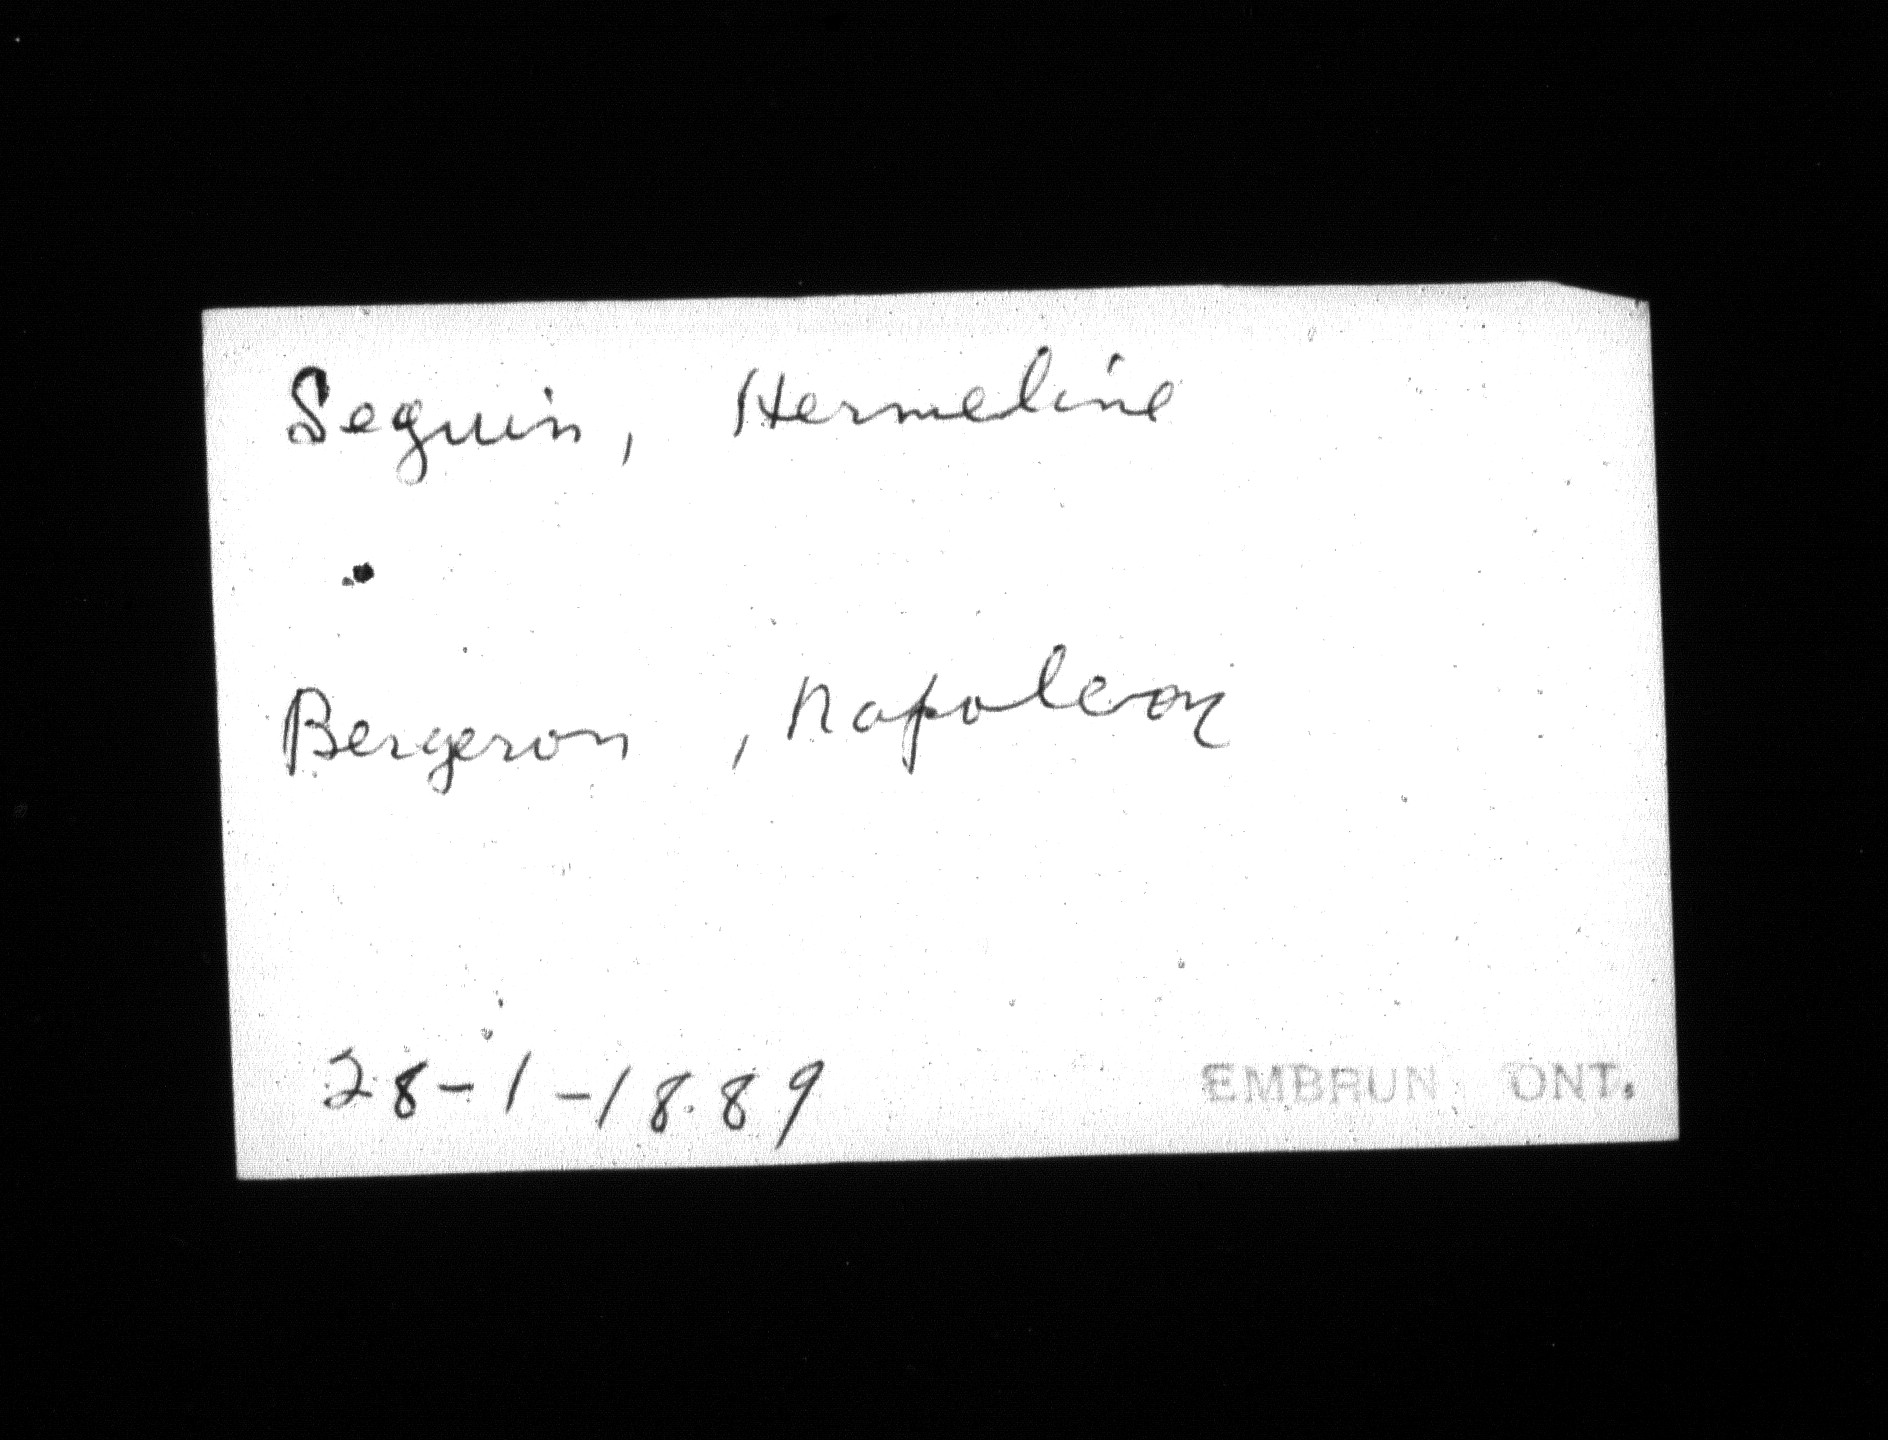 Seguin, Hermeline
Bergeron, Napoleon
28-1-1889
EMBRUN ONT.